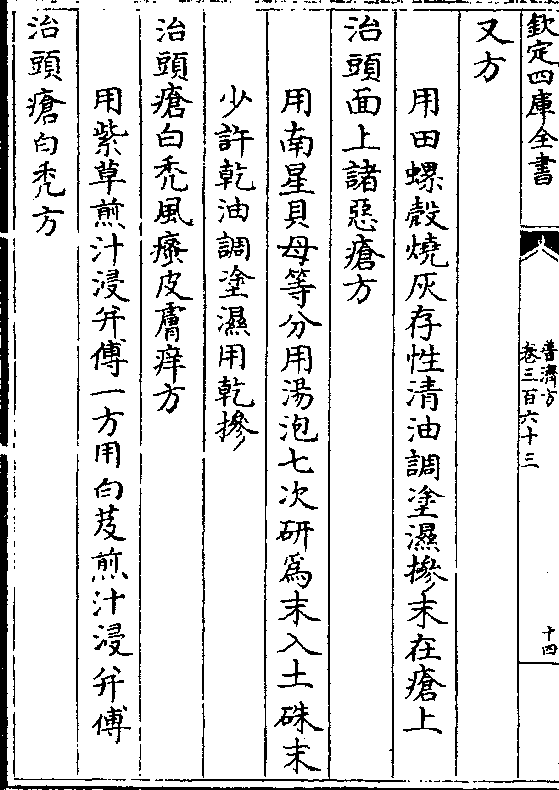 欽定四庫全書
普濟方
卷三百六十三
十四
又方
用田螺殼燒灰存性清油調塗濕摻末在瘡上
治頭面上諸惡瘡方
用南星貝母等分用湯泡七次研為末入土硃末
少許乾油調塗濕用乾摻
治頭瘡白禿風癢皮膚痒方
用紫草煎汁浸并傅一方用白芨煎汁浸并傅
治頭瘡白禿方